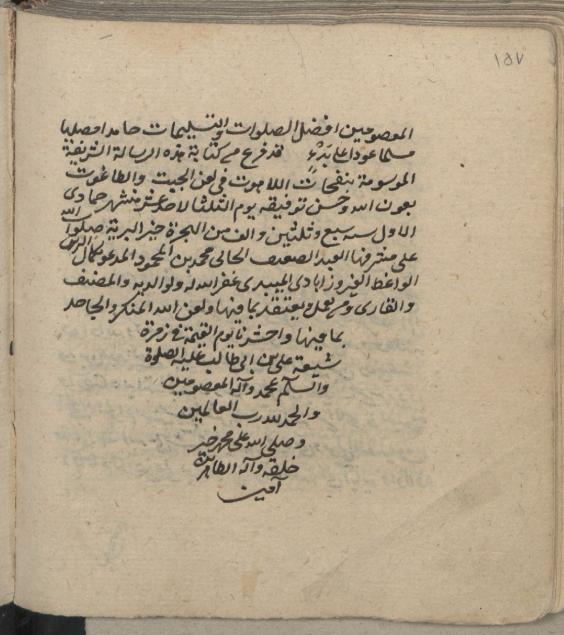 ١٥٧
المعصومين افضل الصلوات والتسليمات حامدا مصليا
مسلما عودا على بدء قد فرغ من كتابة هذه الرسالة الشريفة
الموسومة بنفحات اللاهوت في لعن الجبت والطاغوت
بعون الله وحسن توفيقه يوم الثلثا لاحد عشر من شهر جمادى
الاول سنه سبع وثلثين والف من الهجرة خير البرية صلوات الله
على مشرفها العبد الضعيف الجاني محمد بن المحمود المدعو بكمال الدين
الواعظ الفيروزابادى الميبدى غفر الله له ولوالديه والمصنف
والقارى ومن يعمل ويعتقد بما فيها ولعن الله المنكر والجاحد
بما فيها واحشرنا يوم القيمة في زمرة
شيعة على بن ابى طالب عليه الصلوة
والسلم بمحمد وآله المعصومين
والحمد لله رب العالمين
وصلى الله على محمد خير
خلقه وآله الطاهرين
آمين